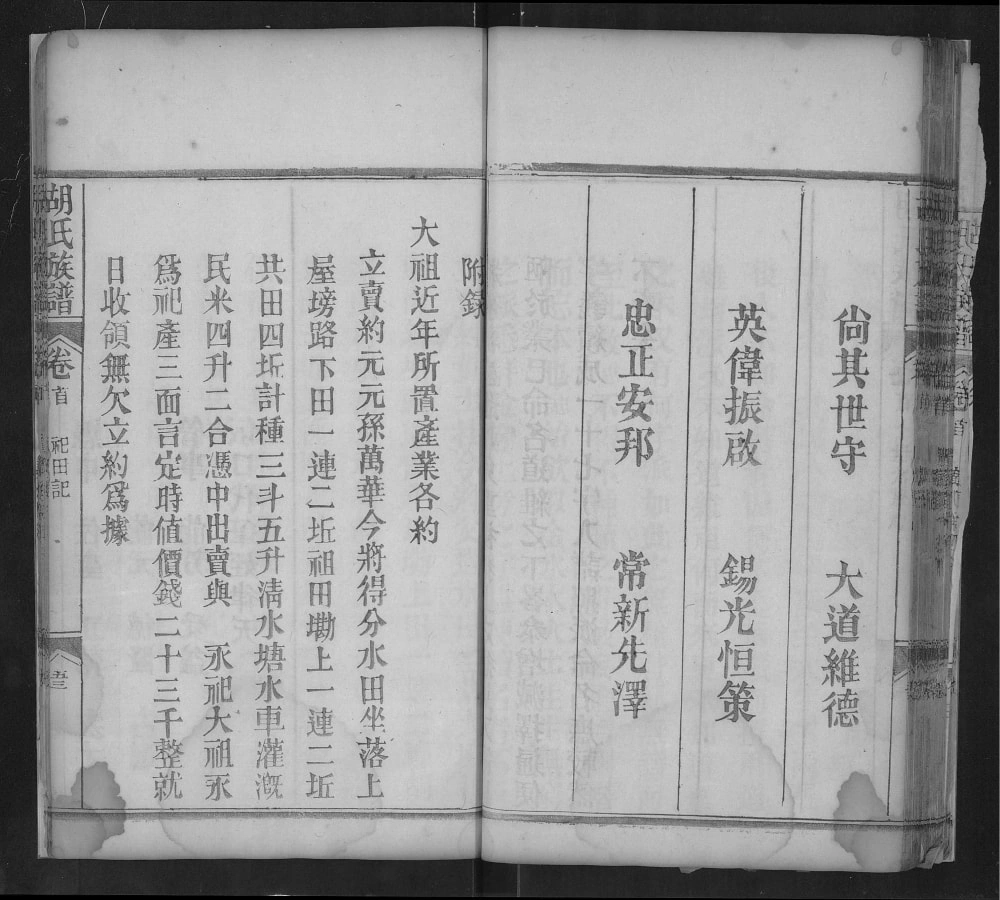 尙其世守　大道維德
英偉振啟　錫光恒策
忠正安邦　常新先澤
附錄
大祖近年所置產業各約
立賣約元元孫萬華今將得分水田坐落上
屋塝路下田一連二坵祖田墈上一連二坵
共田四坵計種三斗五升淸水塘水車灌溉
民米四升二合憑中出賣與　永祀大祖永
爲祀產三面言定時值價錢二十三千整就
日收領無欠立約爲據
胡氏族譜　卷首　祀田記